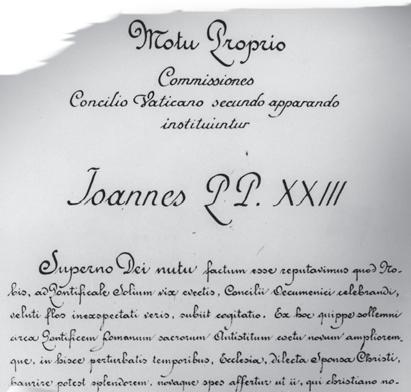 Motu Proprio
Commissiones
Concilio Vaticano secundo apparando
instituuntur
Ioannes P P. XXIII
Superno Dei nutu factum esse reputavimus quod No-
bis, ad Pontificale Solium vix evectis, Concilii Oecumenici celebrandi,
veluti flos inexpectati veris, subiit cogitatio. Ex hoc quippe sollemni
circa Pontificem Romanum sacrorum Antistitum coetu novum ampliorem-
que, in hisce perturbatis temporibus, Ecclesia, dilecta Sponsa Christi,
haurire potest splendorem, novaque spes affertur ut ii, qui christiano no-